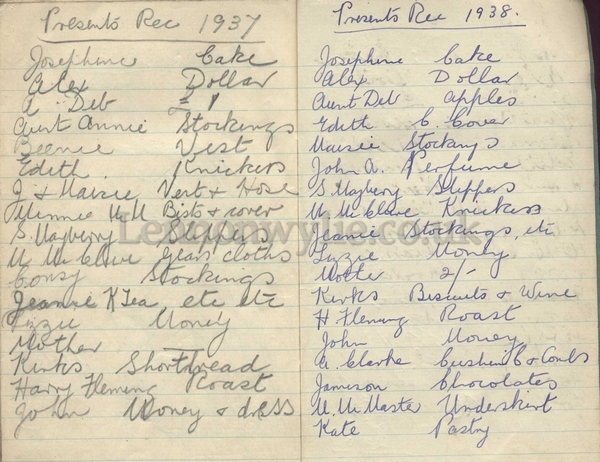 Presents Rec 1937
Josephine Cake
Alex Dollar
A Deb
Aunt Annie Stockings
Beenie Vest
Edith Knickers
J & Maisie Vest & Hose
Minnie McM Bists & cover
S. Mayberry Slippers
M McClure Years cloths
Consy Stockings
Jeanie K Tea, etc etc
Lizzie Money
Mother
Kirks Shortbread
Harry Fleming Roast
John Money & dress
Presents Rec 1938.
Josephine Cake
Alex Dollar
Aunt Deb apples
Edith C Cover
Maisie Stockings
John A. Perfume
S. Mayberry Slippers
M McClure Knickers
Jeanie Stockings, etc
Lizzie Money
Mother 2/-
Kirks Biscuits & Wine
H Fleming Roast
John Money
A. Clarke Cushion C & Combs
Jameson Chocolates
M. McMaster Underskirt
Kate Pastry
Lennonwylie.co.uk